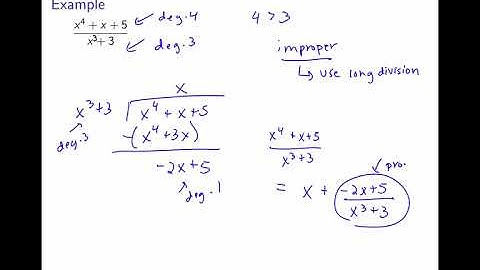 Example
x⁴ + x + 5 deg. 4
x³ + 3 deg. 3
4 > 3
improper
↳ use long division
x
x³+3 x⁴ + x + 5
deg. 3 -(x⁴ + 3x)
-2x + 5
deg. 1
x⁴ + x + 5
x³ + 3
= x + -2x + 5
x³ + 3
pro.